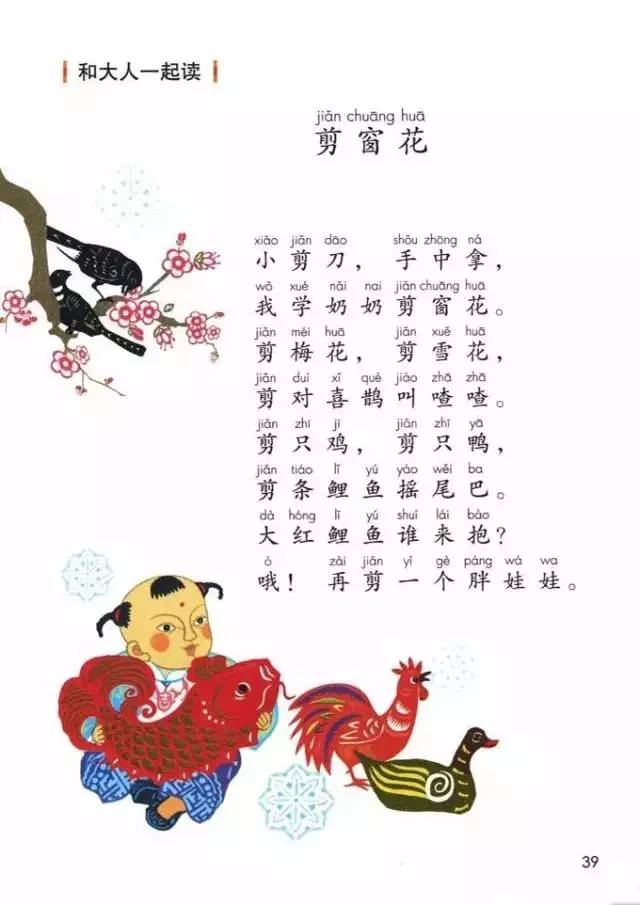 和大人一起读
jiǎn chuāng huā
剪窗花
xiǎo jiǎn dāo shǒu zhōng ná
小剪刀，手中拿，
wǒ xué nǎi nai jiǎn chuāng huā
我学奶奶剪窗花。
jiǎn méi huā jiǎn xuě huā
剪梅花，剪雪花，
jiǎn duì xǐ què jiào zhā zhā
剪对喜鹊叫喳喳。
jiǎn zhī jī jiǎn zhī yā
剪只鸡，剪只鸭，
jiǎn tiáo lǐ yú yáo wěi ba
剪条鲤鱼摇尾巴。
dà hóng lǐ yú shuí lái bào
大红鲤鱼谁来抱？
ò zài jiǎn yí gè pàng wá wa
哦！再剪一个胖娃娃。
39